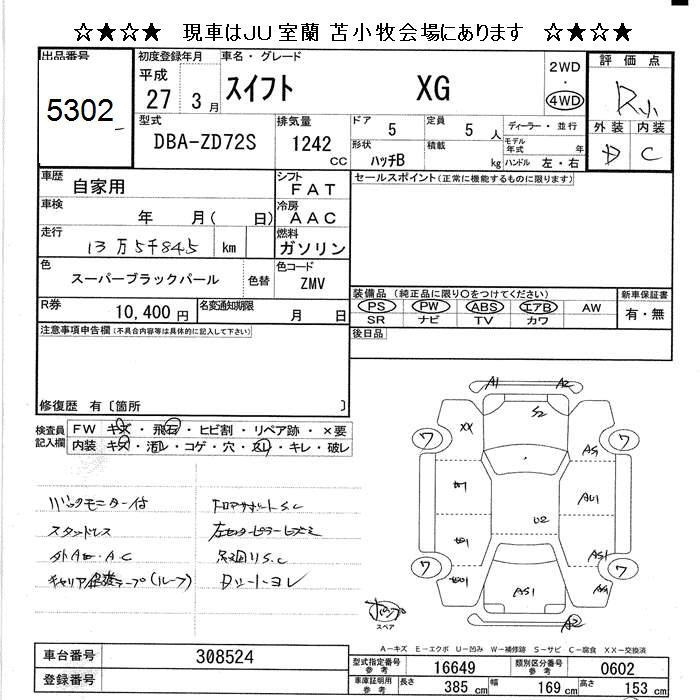 ☆★☆★ 現車はJU室蘭 苫小牧会場にあります ☆★☆★
出品番号 初度登録年月 車名・グレード 評価点
5302 平成 27 3月 スイフト XG 2WD ・ 4WD R小
型式 排気量 ドア 定員 ディーラー・並行 外装 内装
DBA-ZD72S 1242 cc 5 5人 モデル年式 年 D C
形状 ハッチB 積載 kg ハンドル 左・右
車歴 自家用 シフト FAT セールスポイント(正常に機能するものに限ります)
車検 年 月( 日) 冷房 AAC
走行 13万5千845 km 燃料 ガソリン
色 スーパーブラックパール 色替 色コード ZMV
装備品 (純正品に限り○をつけてください) 新車保証書
R券 10,400円 名変通知期限 月 日 PS PW ABS エアB AW 有・無
SR ナビ TV カワ
注意事項申告欄(不具合内容等は具体的に記入して下さい) 後日品
修復歴 有〔箇所 〕
検査員記入欄 FW キズ・飛石・ヒビ割・リペア跡・×要
内装 キズ・汚レ・コゲ・穴・スレ・キレ・破レ
A1 A2
S2
XX
ワ ワ
A1
U2
ワ ワ
AS1
A2
バックモニター付
スタッドレス
S.C
スペア
A-キズ E-エクボ U-凹み W-補修跡 S-サビ C-腐食 XX-交換済
車台番号 308524 型式指定番号参考 16649 類別区分番号参考 0602
登録番号 車庫証明用参考 長さ 385cm 幅 169cm 高さ 153cm